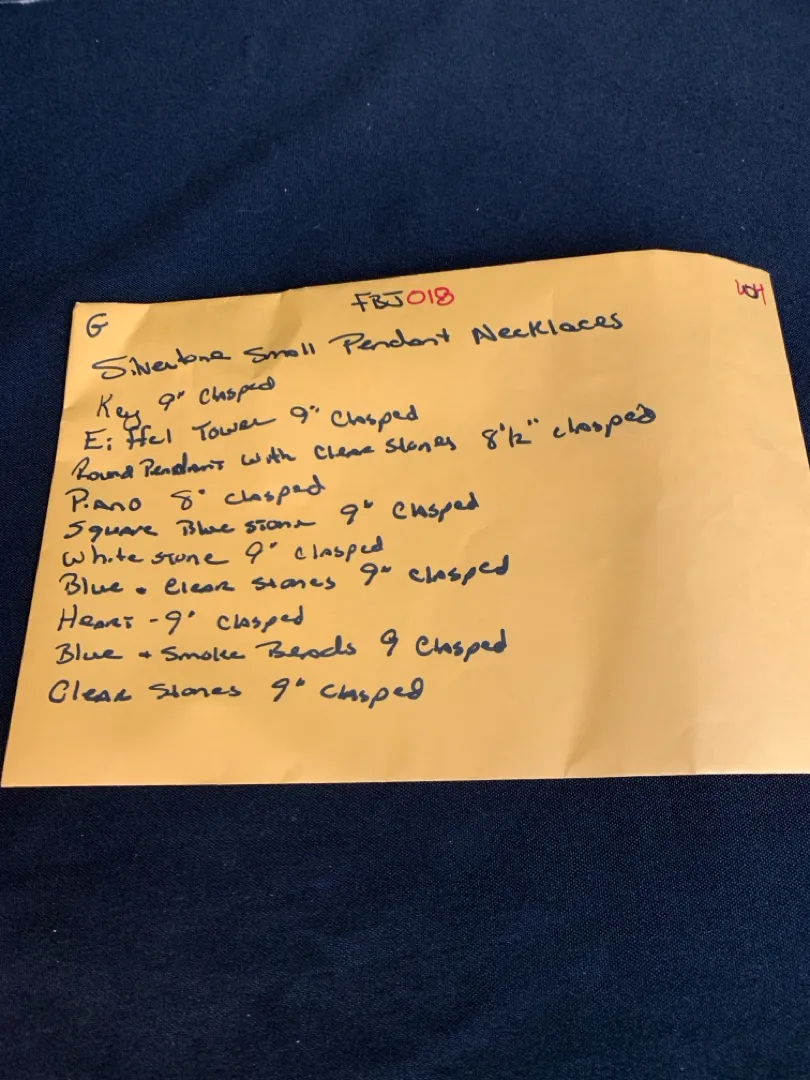 FBJ018
G
Silvertone Small Pendant Necklaces
Key 9" Clasped
Eiffel Tower 9" Clasped
Round Pendants with Clear Stones 8 1/2" clasped
Piano 8" clasped
Square Blue stone 9" Clasped
White stone 9" clasped
Blue + Clear Stones 9" clasped
Heart - 9" clasped
Blue + Smoke Beads 9 Clasped
Clear Stones 9" clasped